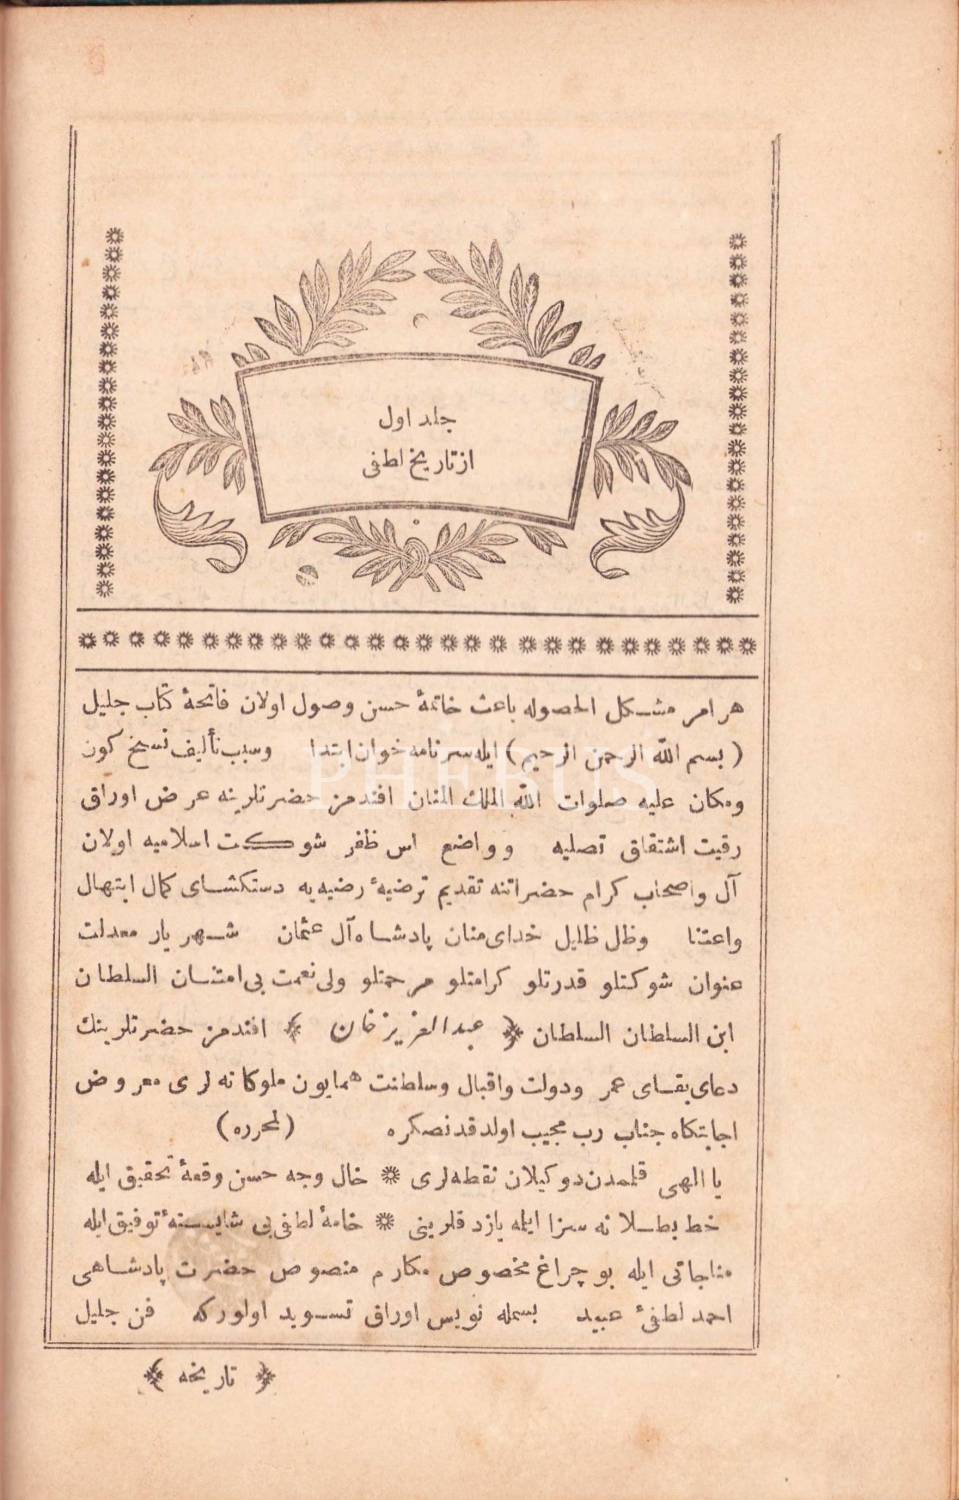 جلد اول
از تاریخ لطفی
هر امر مشكل الحصوله باعث خاتمهٔ حسن وصول اولان فاتحهٔ كتاب جلیل
( بسم الله الرحمن الرحیم ) ایله سرنامه خوان ابتدا وسبب تألیف نسخ كون
ومكان علیه صلوات الله الملك المنان افندمز حضرتلرینه عرض اوراق
رقیت اشتقاق تصلیه و واضع اس ظفر شوكت اسلامیه اولان
آل واصحاب كرام حضراتنه تقدیم ترضیهٔ رضیه یه دستكشای كمال ابتهال
واعتنا وظل ظلیل خدای منان پادشاه آل عثمان شهریار معدلت
عنوان شوكتلو قدرتلو كرامتلو مرحمتلو ولی نعمت بی امتنان السلطان
ابن السلطان السلطان ﴿ عبدالعزیز خان ﴾ افندمز حضرتلرینك
دعای بقای عمر ودولت واقبال وسلطنت همایون ملوكانه لری معروض
اجابتكاه جناب رب مجیب اولدقدنصكره (لمحرره)
یا الهی قلمدن دوكیلان نقطه لری ❋ خال وجه حسن وقعهٔ تحقیق ایله
خط بطلانه سزا ایله یازدقلرینی ❋ خامهٔ لطفی بی شایستهٔ توفیق ایله
مناجاتی ایله بو چراغ مخصوص مكارم منصوص حضرت پادشاهی
احمد لطفیٔ عبید بسمله نویس اوراق تسوید اولوركه فن جلیل
﴿ تاریخه ﴾
PHEBUS